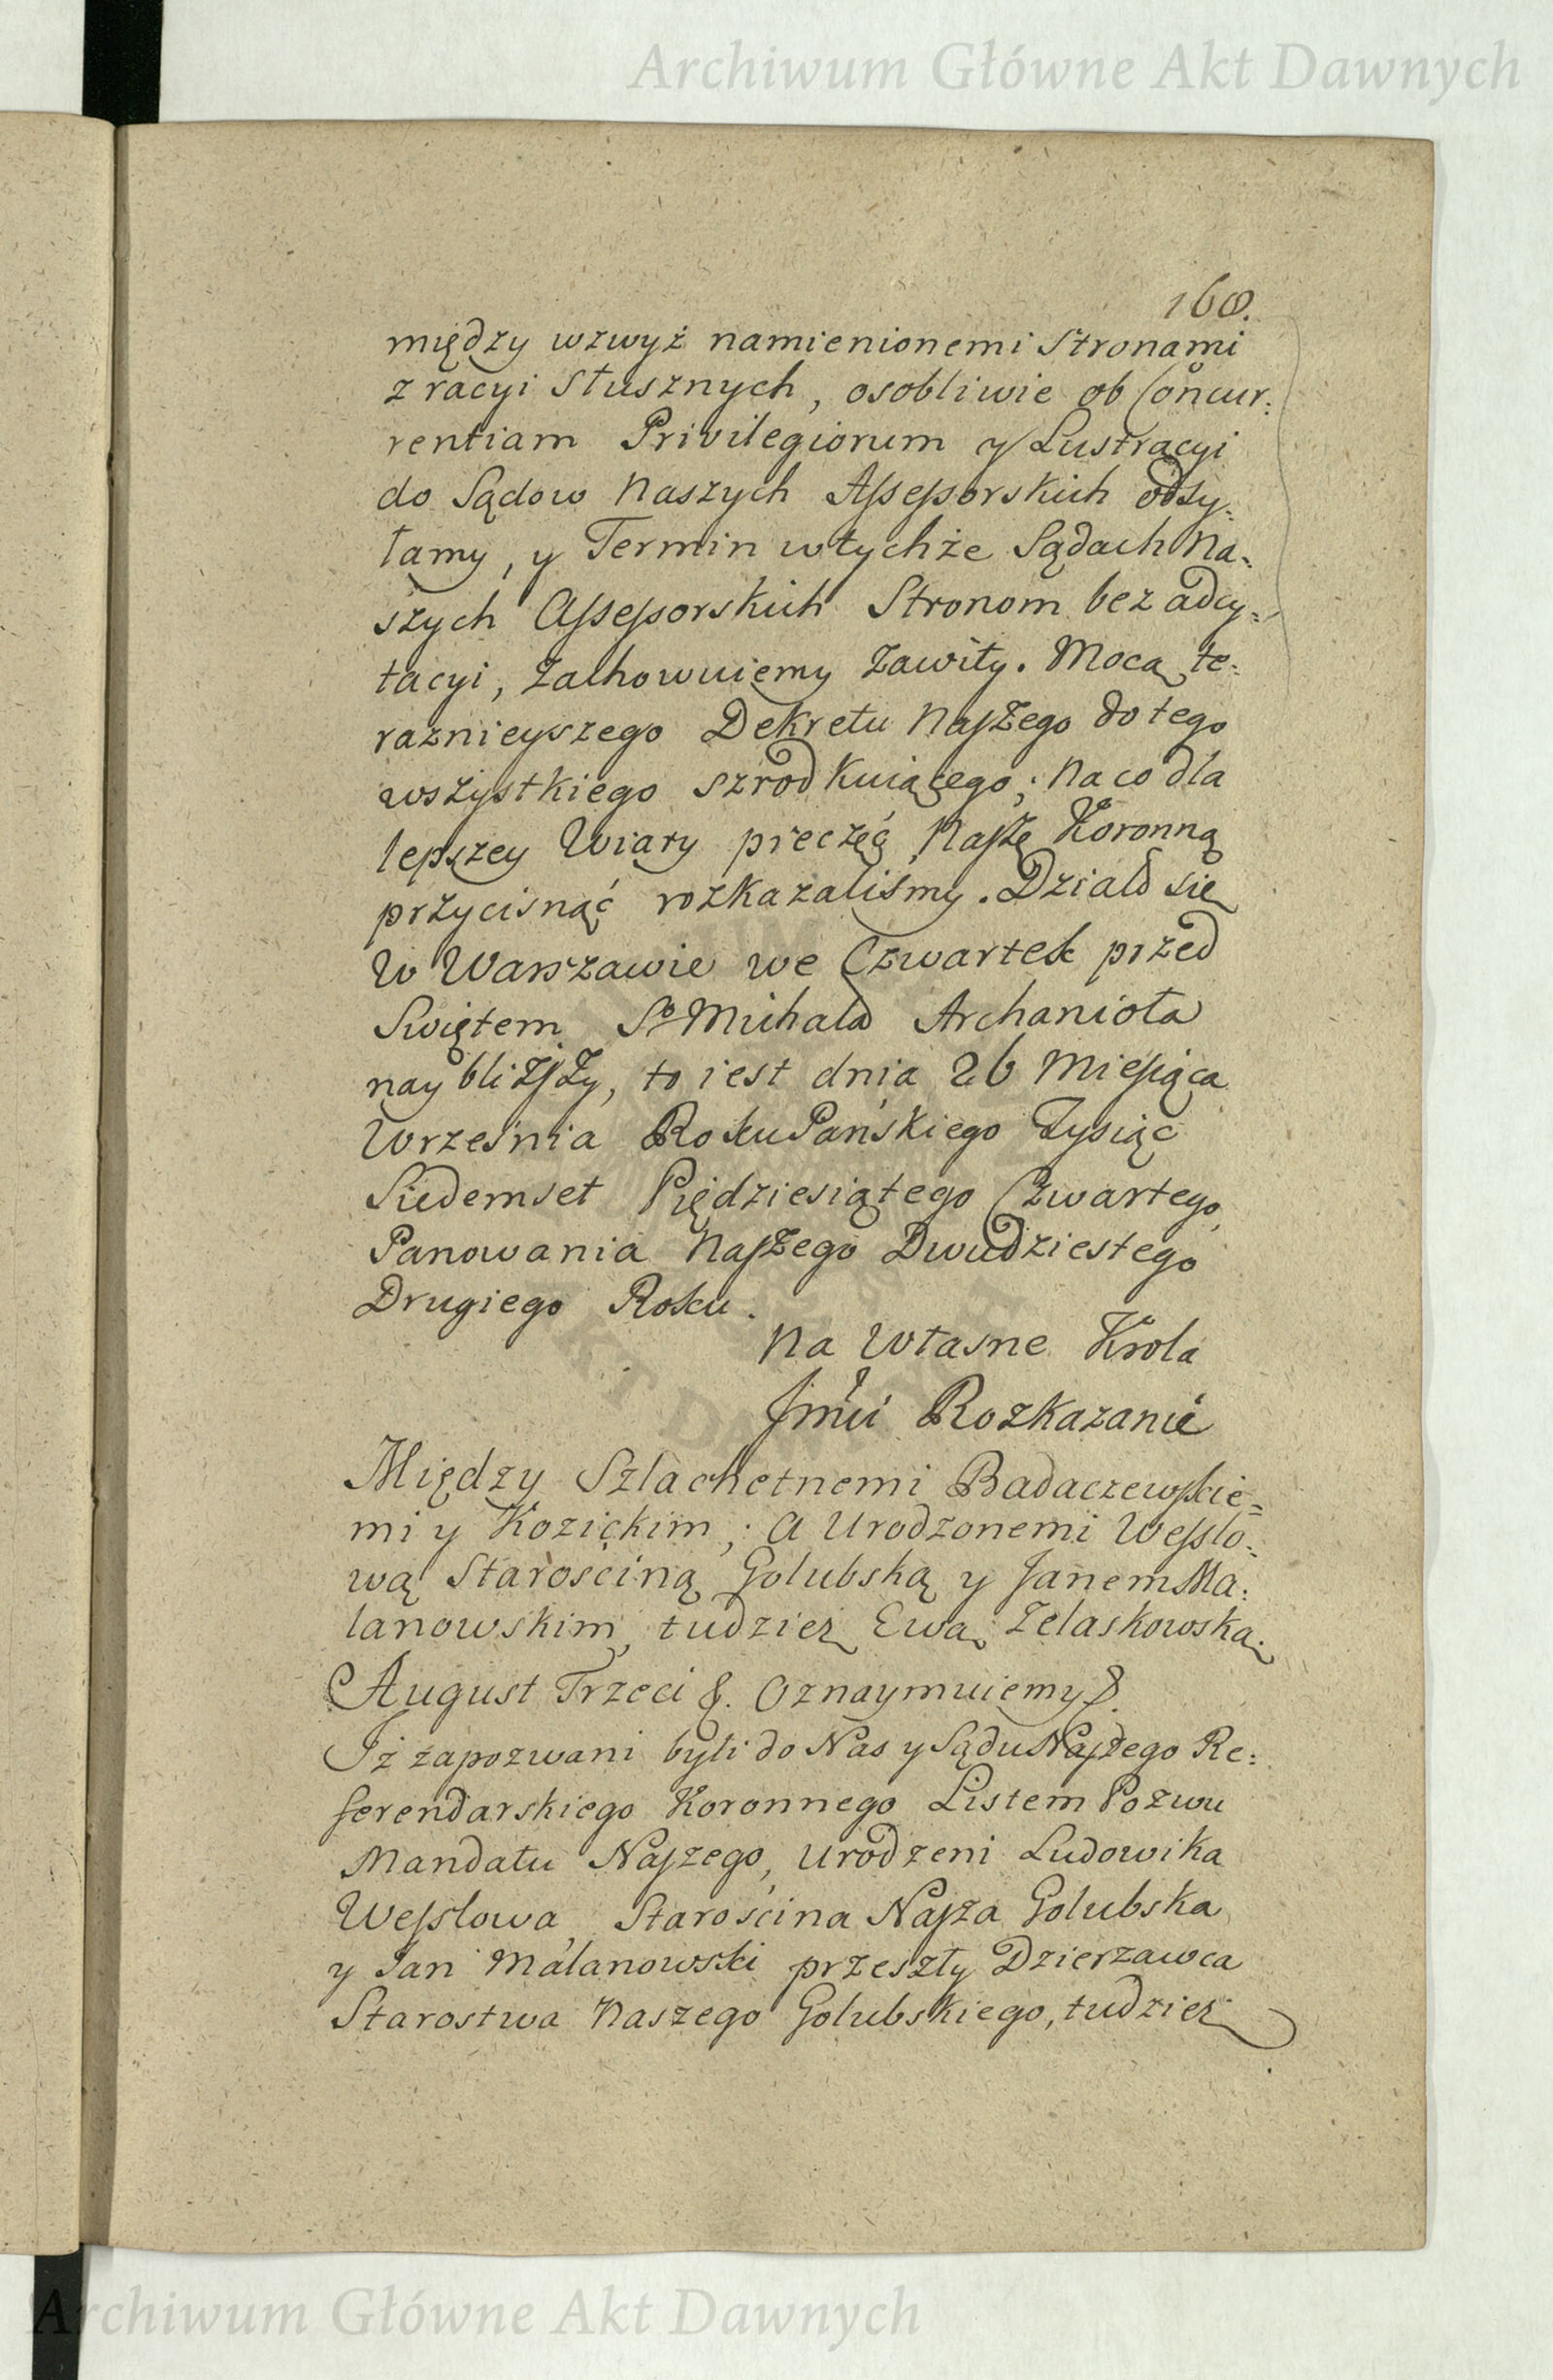 Archiwum Główne Akt Dawnych
168.
między wzwyż namienionemi Stronami
z racyi Słusznych, osobliwie ob Concur:
rentiam Privilegiorum y Lustracyi
do Sądow Naszych Assessorskich odsy:
łamy, y Termin w tychże Sądach Na:
szych Assessorskich Stronom bez adcy:
tacyi, Zachowuiemy Zawity. Mocą te:
raznieyszego Dekretu Naszego do tego
wszystkiego szrodkuiącego; Na co dla
lepszey Wiary pieczęć Naszę Koronną
przycisnąć rozkazaliśmy. Działo się
W Warszawie we Czwartek przed
Swiętem So Michała Archanioła
naybliższy, to iest dnia 26 Miesiąca
Września Roku Pańskiego Tysiąc
Siedemset Piędziesiątego Czwartego,
Panowania Naszego Dwudziestego
Drugiego Roku.
Na Własne Krola
Jmći Rozkazanie
Między Szlachetnemi Badaczewskie=
mi y Kozickim; a Urodzonemi Wesslo:
wą Starościną Golubską y Janem Ma:
lanowskim, tudziesz Ewą Zelaskowską.
August Trzeci &. Oznaymuiemy &.
Iż zapozwani byli do Nas y Sądu Naszego Re:
ferendarskiego Koronnego Listem Pozwu
Mandatu Naszego, Urodzeni Ludowika
Wesslowa, Starościna Nasza Golubska
y Jan Malanowski przeszły Dzierzawca
Starostwa Naszego Golubskiego, tudziesz
Archiwum Główne Akt Dawnych